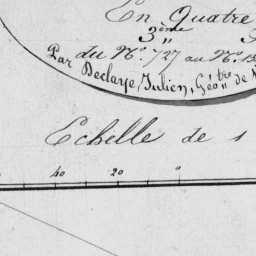 En Quatre
3ème
du No. 727 au No. 13
Par Declaye Julien, Géotre de
Echelle de 1
40 20 0